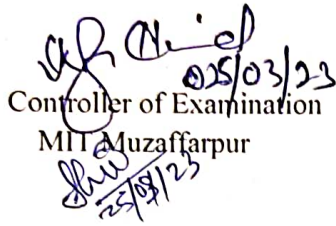 025/03/23
Controller of Examination
MIT Muzaffarpur
25/03/23